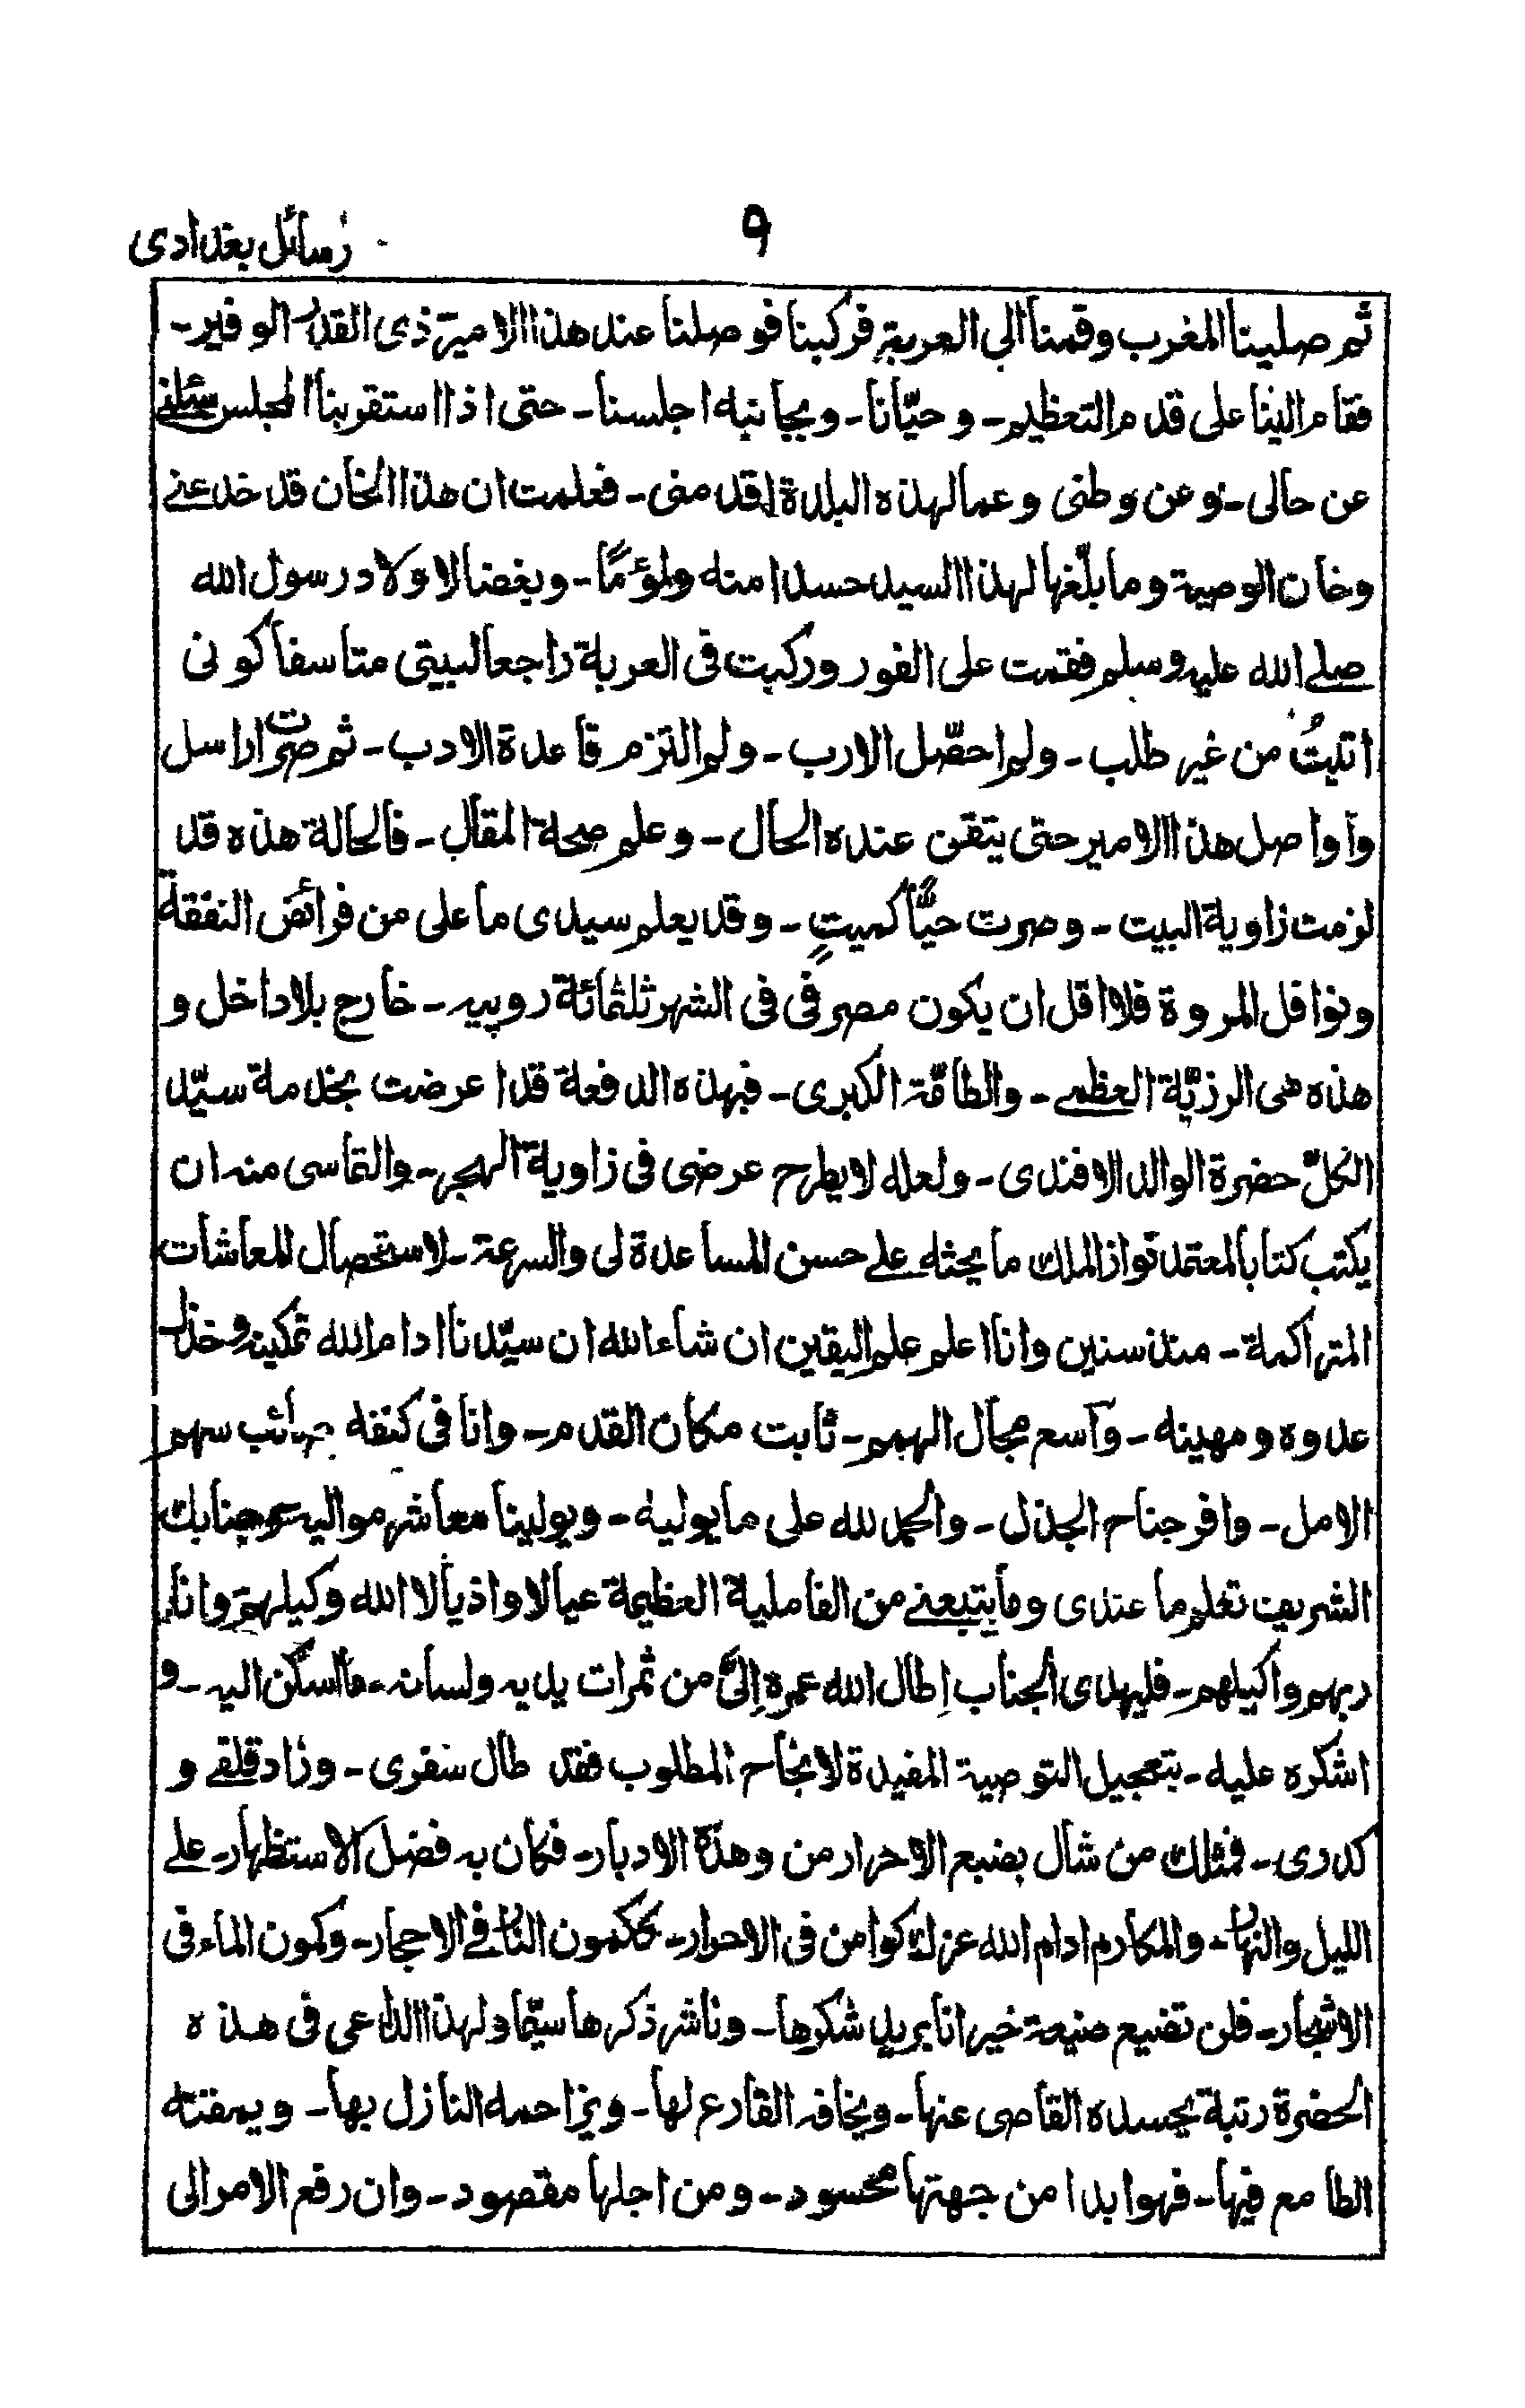 ٩
رسائل بغدادی
ثم صلينا المغرب وقمنا الي العربة فركبنا فوصلنا عند هذا الامير ذى القدر الوفير۔
فقام الينا على قدم التعظيم۔ وحيّانا۔ وبجانبه اجلسنا۔ حتى اذا استقربنا المجلس سئلنے
عن حالى۔ وعن وطنى وعما لهذه البلدة اقدمنى۔ فعلمت ان هذا الخان قد خدعنے
وخان الوصية وما بلّغها لهذا السيد حسدا منه ولؤمًا۔ وبغضا لاولاد رسول الله
صلے الله عليه وسلم فقمت على الفور وركبت فى العربة راجعا لبيتى متاسفا كونى
اتيتُ من غير طلب۔ ولم احصّل الارب۔ ولم التزم قاعدة الادب۔ ثم صرت اراسل
واواصل هذا الامير حتى يتقن عنده الحال۔ وعلم صحة المقال۔ فالحالة هذه قد
لزمت زاوية البيت۔ وصرت حيًّا كميتٍ۔ وقد يعلم سيدى ما على من فرائض النفقة
ونوافل المروة فلا اقل ان يكون مصرفى فى الشهر ثلثمائة روپيه۔ خارج بلا داخل و
هذه هى الرزيّة العظمے۔ والطامّة الكبرى۔ فبهذه الدفعة قد اعرضت بخدمة سيّد
الكلّ حضرة الوالد الافندى۔ ولعله لا يطرح عرضى فى زاوية الهجر۔ والتماسى منه ان
يكتب كتابا لمعتمد نواز الملك ما يحثه علے حسن المساعدة لى والسرعة۔ لاستحصال المعاشات
المتراكمة۔ منذ سنين وانا اعلم علم اليقين ان شاء الله ان سيّدنا ادام الله تمكينه وخذل
عدوه ومهينه۔ واسع مجال الهمم۔ ثابت مكان القدم۔ وانا فى كنفه صائب سهم
الامل۔ وافر جناح الجذل۔ والحمد لله على ما يوليه۔ ويولينا معاشر مواليه وجنابك
الشريف تعلم ما عندى وما يتبعنے من الفاملية العظيمة عيالا واذيالا الله وكيلهم وانا
ربهم واكيلهم۔ فليهدى الجناب اطال الله عمره اِلىّ من ثمرات يديه ولسانه۔ ما اسكن اليه۔ و
اشكره عليه۔ بتعجيل التوصية المفيدة لانجاح المطلوب فقد طال سفرى۔ وزاد قلقے و
كدرى۔ فمثلك من شال بضبع الاحرار من وهدة الادبار۔ فكان به فضل الاستظهار۔ علے
الليل والنهار۔ والمكارم ادام الله عزك كوامن فى الاحرار۔ ككمون النار فے الاحجار۔ وكمون الماء فى
الاشجار۔ فلن تضيع صنيعة خير انا بريد شكرها۔ وناشر ذكرها سيّما ولهذا الداعى فى هذه
الحضرة رتبة يحسده القاصى عنها۔ ويخافه القارع لها۔ ويزاحمه النازل بها۔ ويمقته
الطامع فيها۔ فهو ابدا من جهتها محسود۔ ومن اجلها مقصود۔ وان رفع الامر الى